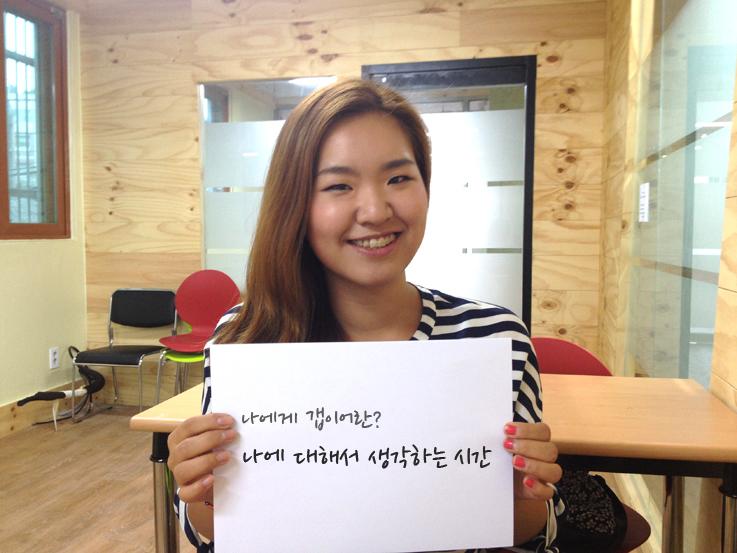 나에게 갭이어란?
나에 대해서 생각하는 시간